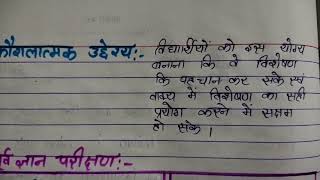 कौशलात्मक उद्देश्य:-
विद्यार्थीयों को इस योग्य
बनाना कि वे विशेषण
कि पहचान कर सके एवं
वाक्य में विशेषण का सही
प्रयोग करने में सक्षम
हो सके ।
र्व ज्ञान परीक्षण:-